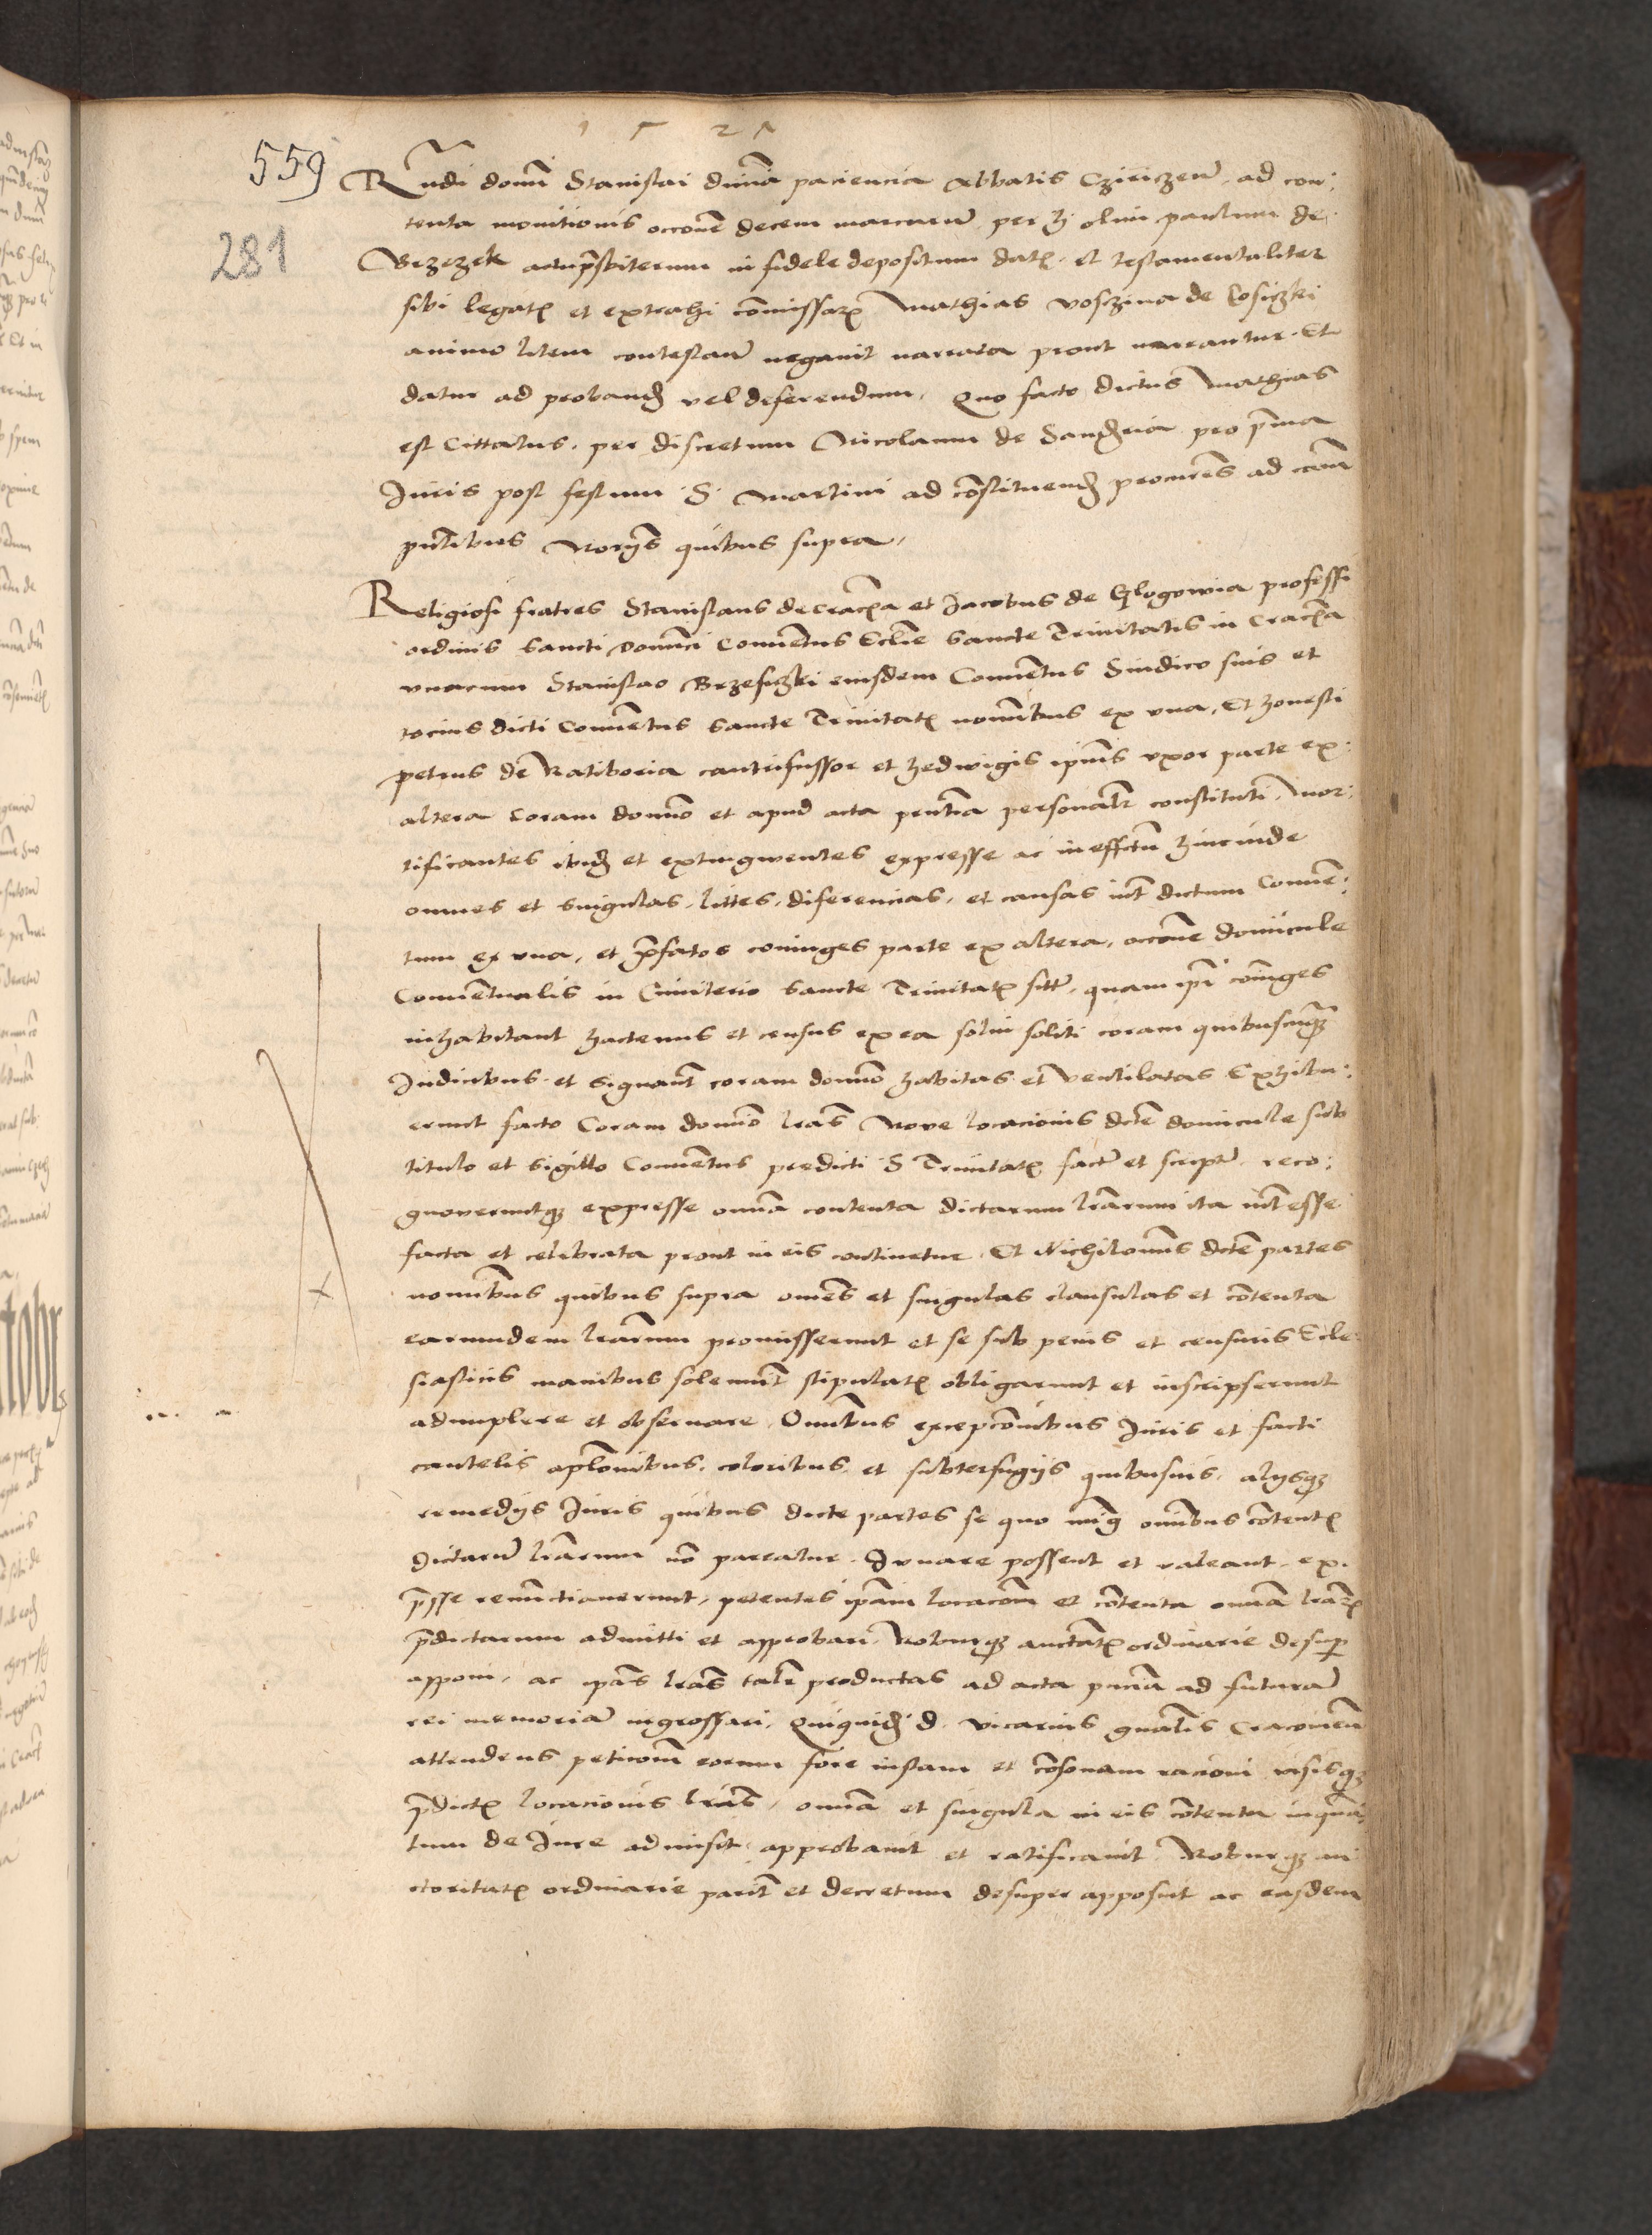 1521
559
281
Rndi domi Stanislai divina paciencia Abbatis Cziriczen ad con:
tenta monitionis occone decem marcarum per h. olim paulum de
Brzezek actu prsbiterum in fidele depositum datx et testamentaliter
sibi legatx et extrahi comissarx Mathias voszina de
animo litem contestan negavit narrata prout narrantur. Et
datur ad proband vel deferendum. Quo facto dictus Mathias
est Cittatus per discretum Nicolaum de pro prima
Juris post festum S. Martini ad constituend procures ad cam
pntibus Norys quibus supra.
Religiosi fratres Stanislaus de cracoa et Jacobus de Glogowia professi
ordinis sancti domici Conuentus Eclie sancte Trinitatis in Cracoa
vnacum Stanislao Brzesiczki eiusdem Conuentus Sindico suis et
tocius dicti Conuentus sancte Trinitatx nomibus ex vna, Et honesti
petrus de Ratiboria cantrifussor et hedwigis ipius vxor parte ex
altera Coram domino et apud acta pntia personalr constituti. Mor:
tificantes ibid et extingwentes expresse ac in effctum hincinde
omnes et singulas littes, diferencias, et causas int dictum Conuen:
tum ex vna, et prefatos coniuges parte ex altera, occone domicule
Conuentualis in Cimiterio sancte Trinitatx sitte, quam ipi coniuges
inhabitant hactenus et census ex ea solui soliti coram quibuscunqz
Judicibus et signant coram domino habitas et ventilatas Exhibu:
erunt facto Coram domino lras Nove locacionis dcte domicule sub
titulo et sigillo Conuentus predicti S Trinitatx factx et scriptx reco:
gnoveruntqz expresse omnia contenta dictarum lrarum ita int esse
facta et celebrata prout in eis continetur. Et Nichilominus dcte partes
nomibus quibus supra omes et singulas clausulas et contenta
earumdem lrarum promisserunt et se sub penis et censuris Ecle
siasticis manibus solemnit stipulatx obligarunt et inscripserunt
adimplere et obseruare. Omnibus excepconibus Juris et facti
cautelis aplonibus coloribus et subterfugys quibusuis, alysqz
remedys Juris quibus dicte partes se quo ming omibus contentx
dictarum lrarum no pareatur. Iuuare possent et valeant ex
presse renunctiauerunt, petentes ipam locacom et contenta omnia lrarx
predictarum admitti et approbari. Roburqz auctatx ordinarie desup
apponi, ac ipas lras talr productas ad acta pncia ad futuram
rei memoriam ingrossari. Quiquid d. vicarius gnalis Cracouien
attendens peticom eorum fore iustam et cosonam racioni visisqz
predictx locacionis lras, omnia et singula in eis contenta inquan
tum de Jure admisit approbauit et ratificauit. Roburqz au
ctoritatx ordinarie parit et decretum desuper apposuit ac easdem